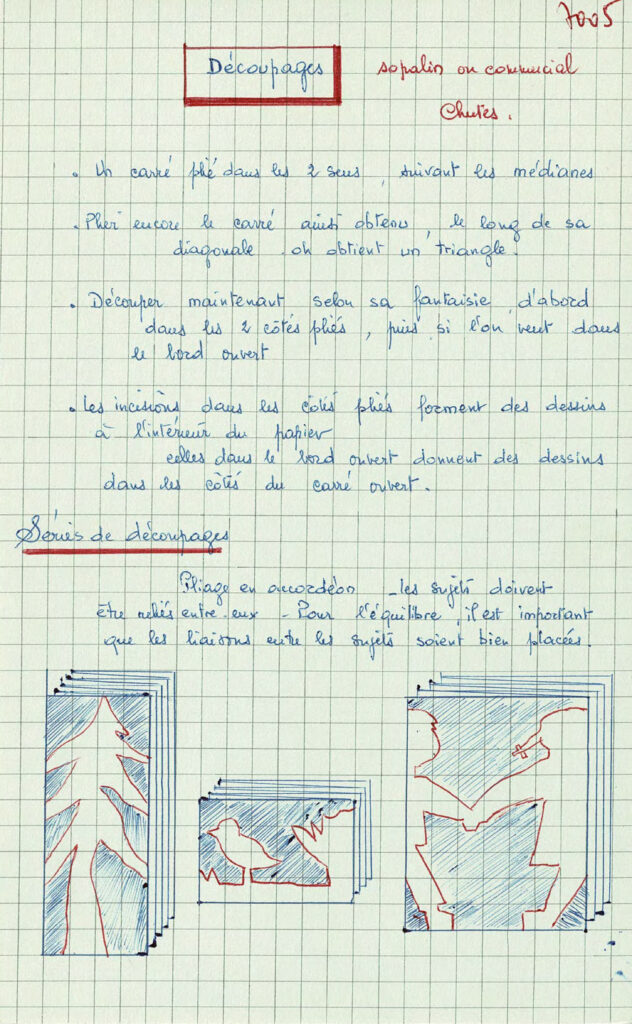 7005
Découpages
sopalin ou commercial
Chutes.
. Un carré plié dans les 2 sens, suivant les médianes
. Plier encore le carré ainsi obtenu, le long de sa
diagonale. on obtient un triangle.
. Découper maintenant selon sa fantaisie, d'abord
dans les 2 côtés pliés, puis si l'on veut dans
le bord ouvert
. Les incisions dans les côtés pliés forment des dessins
à l'intérieur du papier
celles dans le bord ouvert donnent des dessins
dans les côtés du carré ouvert.
Séries de découpages
Pliage en accordéon - les sujets doivent
être reliés entre-eux - Pour l'équilibre, il est important
que les liaisons entre les sujets soient bien placées.